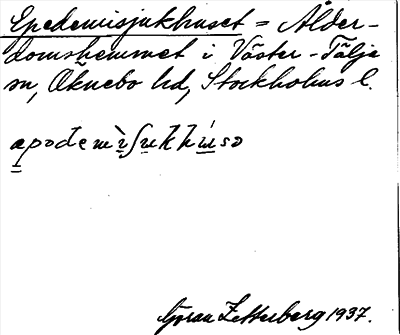 Epedemisjukhuset = Ålder-
domshemmet i Väster-Tälje
sn, Öknebo hd, Stockholms l.
apodemiʃukhùso
Göran Zetterberg 1937.